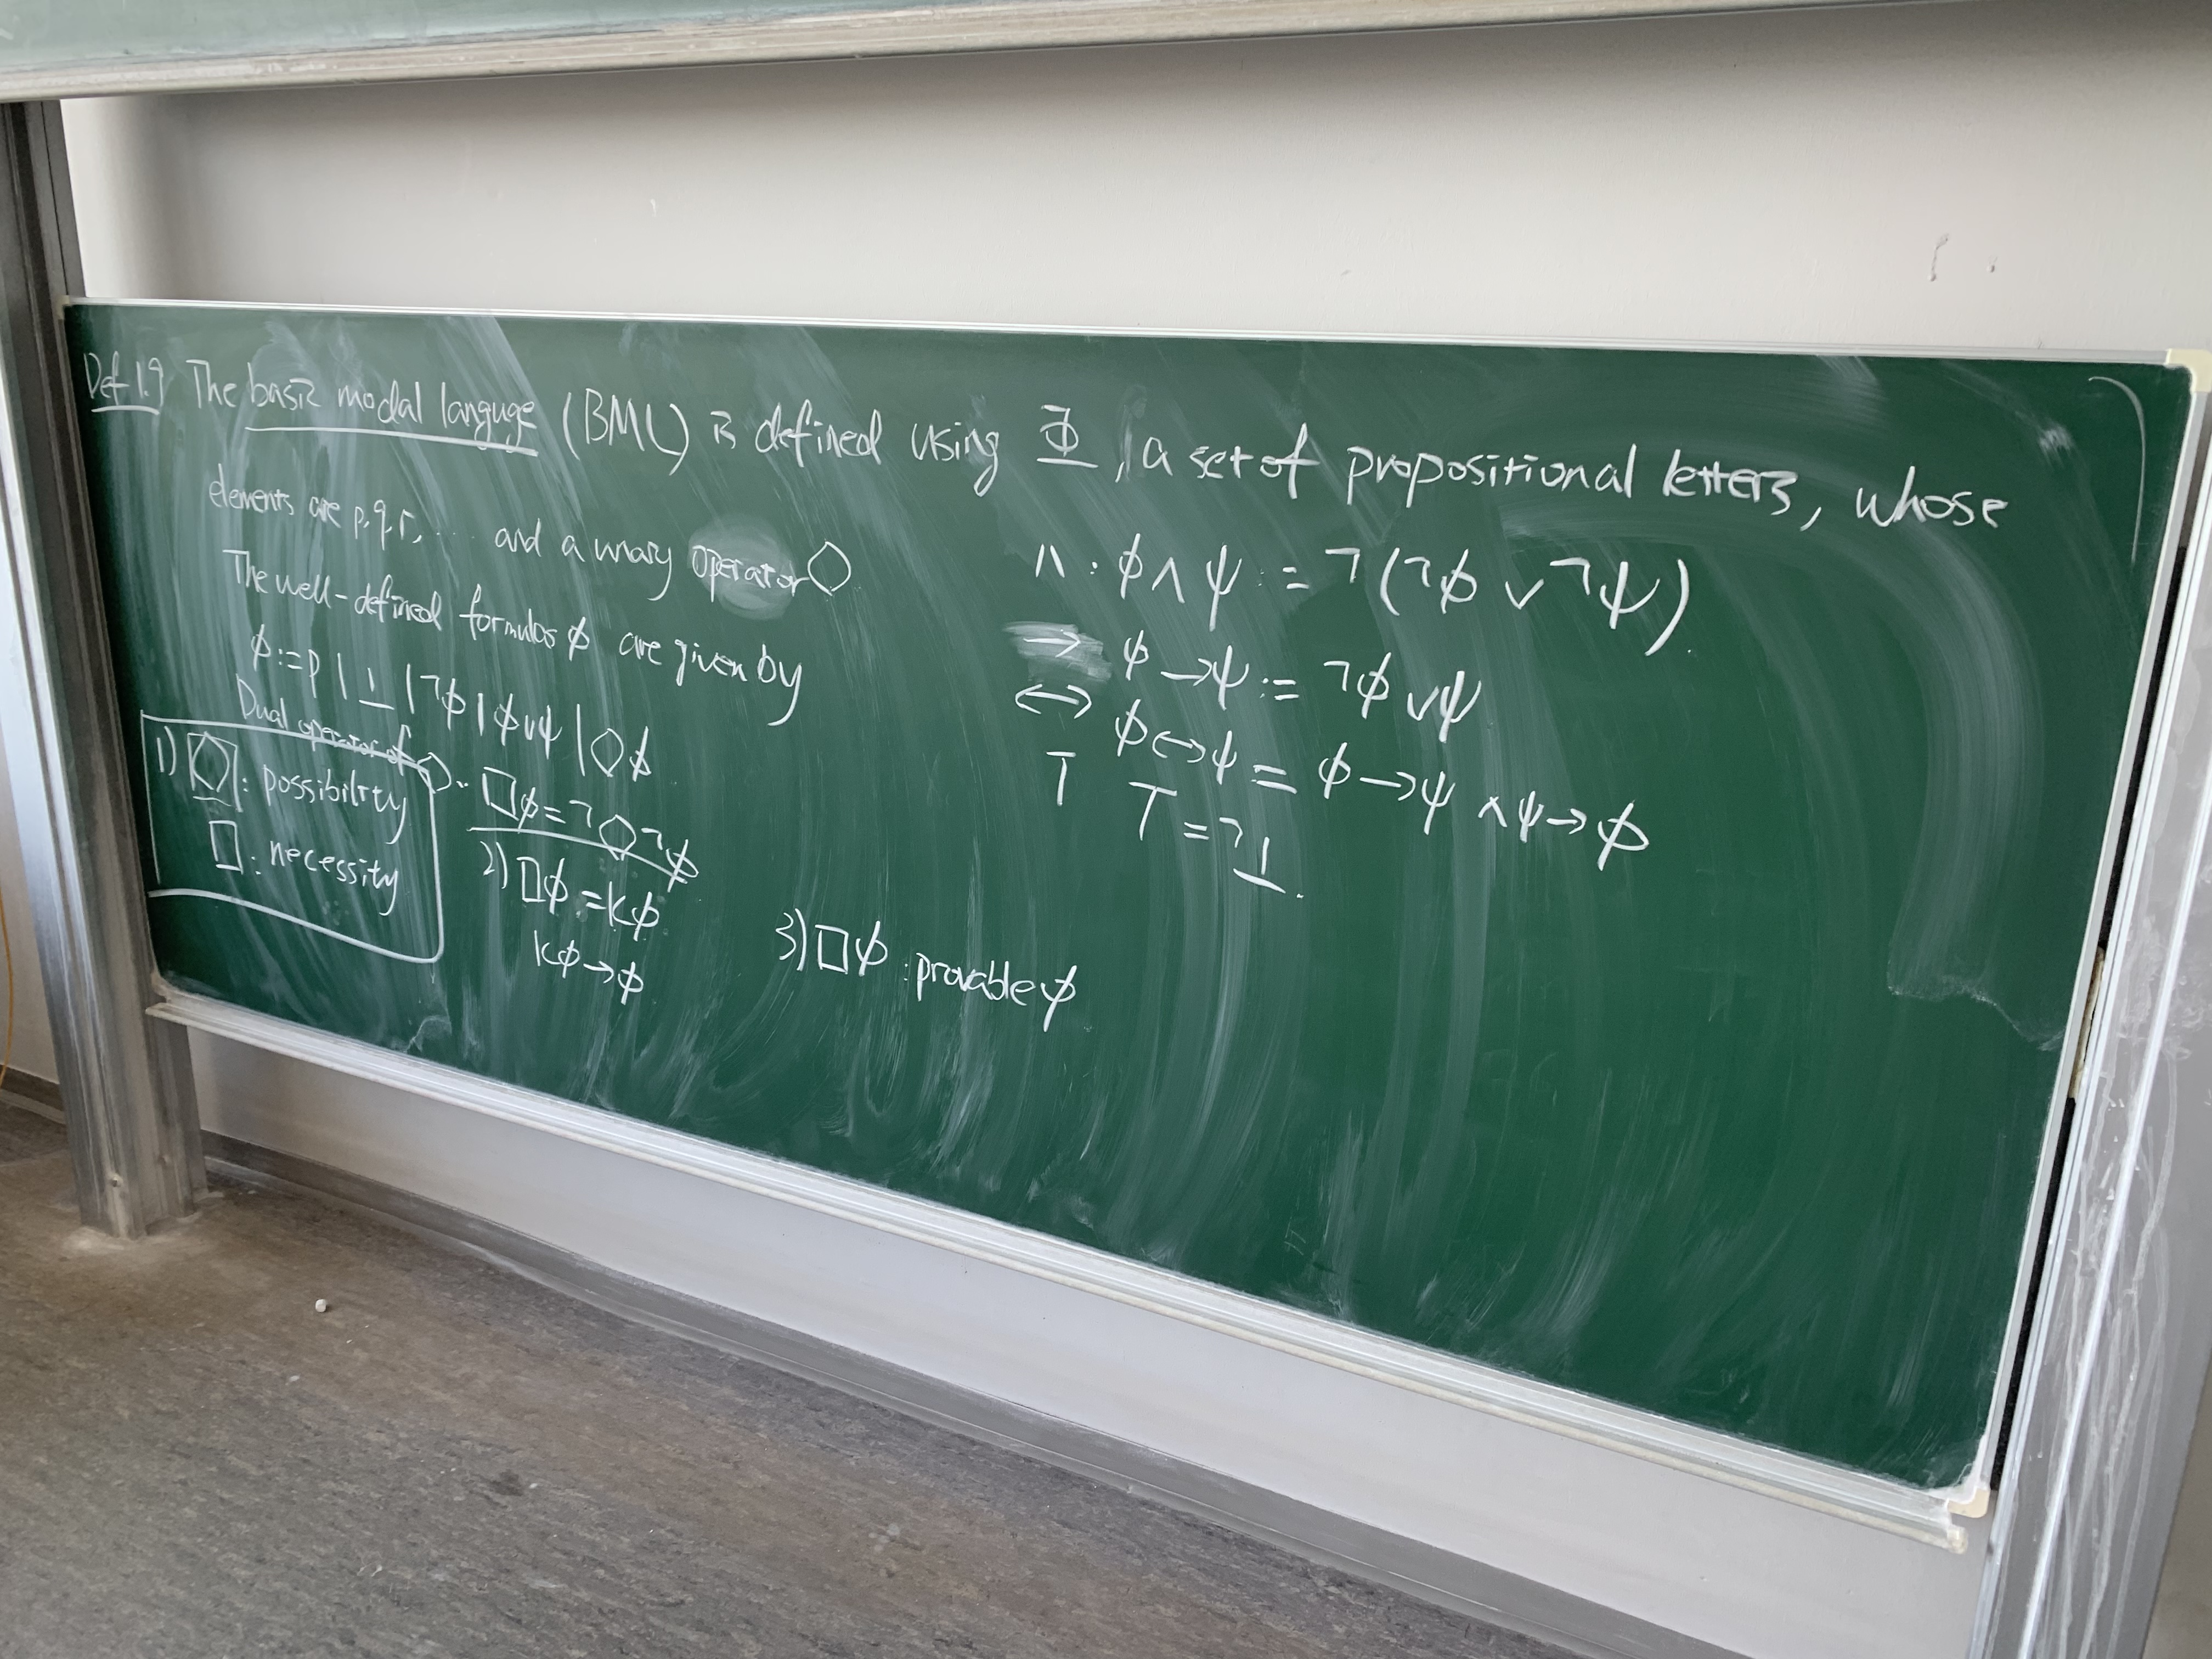 Def 1.9 The basic modal languge (BML) is defined using Φ, a set of propositional letters, whose
elements are p, q, r, ... and a unary operator ◇
The well-defined formulas ϕ are given by
ϕ := p | ⊥ | ¬ϕ | ϕ∨ψ | ◇ϕ
Dual operator of ◇. □ϕ = ¬◇¬ϕ
1) ◇: possibility
□: necessity
2) □ϕ = Kϕ
Kϕ → ϕ
3) □ϕ : provable ϕ
∧ : ϕ∧ψ := ¬(¬ϕ ∨ ¬ψ).
→ ϕ→ψ := ¬ϕ∨ψ
↔ ϕ↔ψ = ϕ→ψ ∧ ψ→ϕ
⊤ ⊤ = ¬⊥.